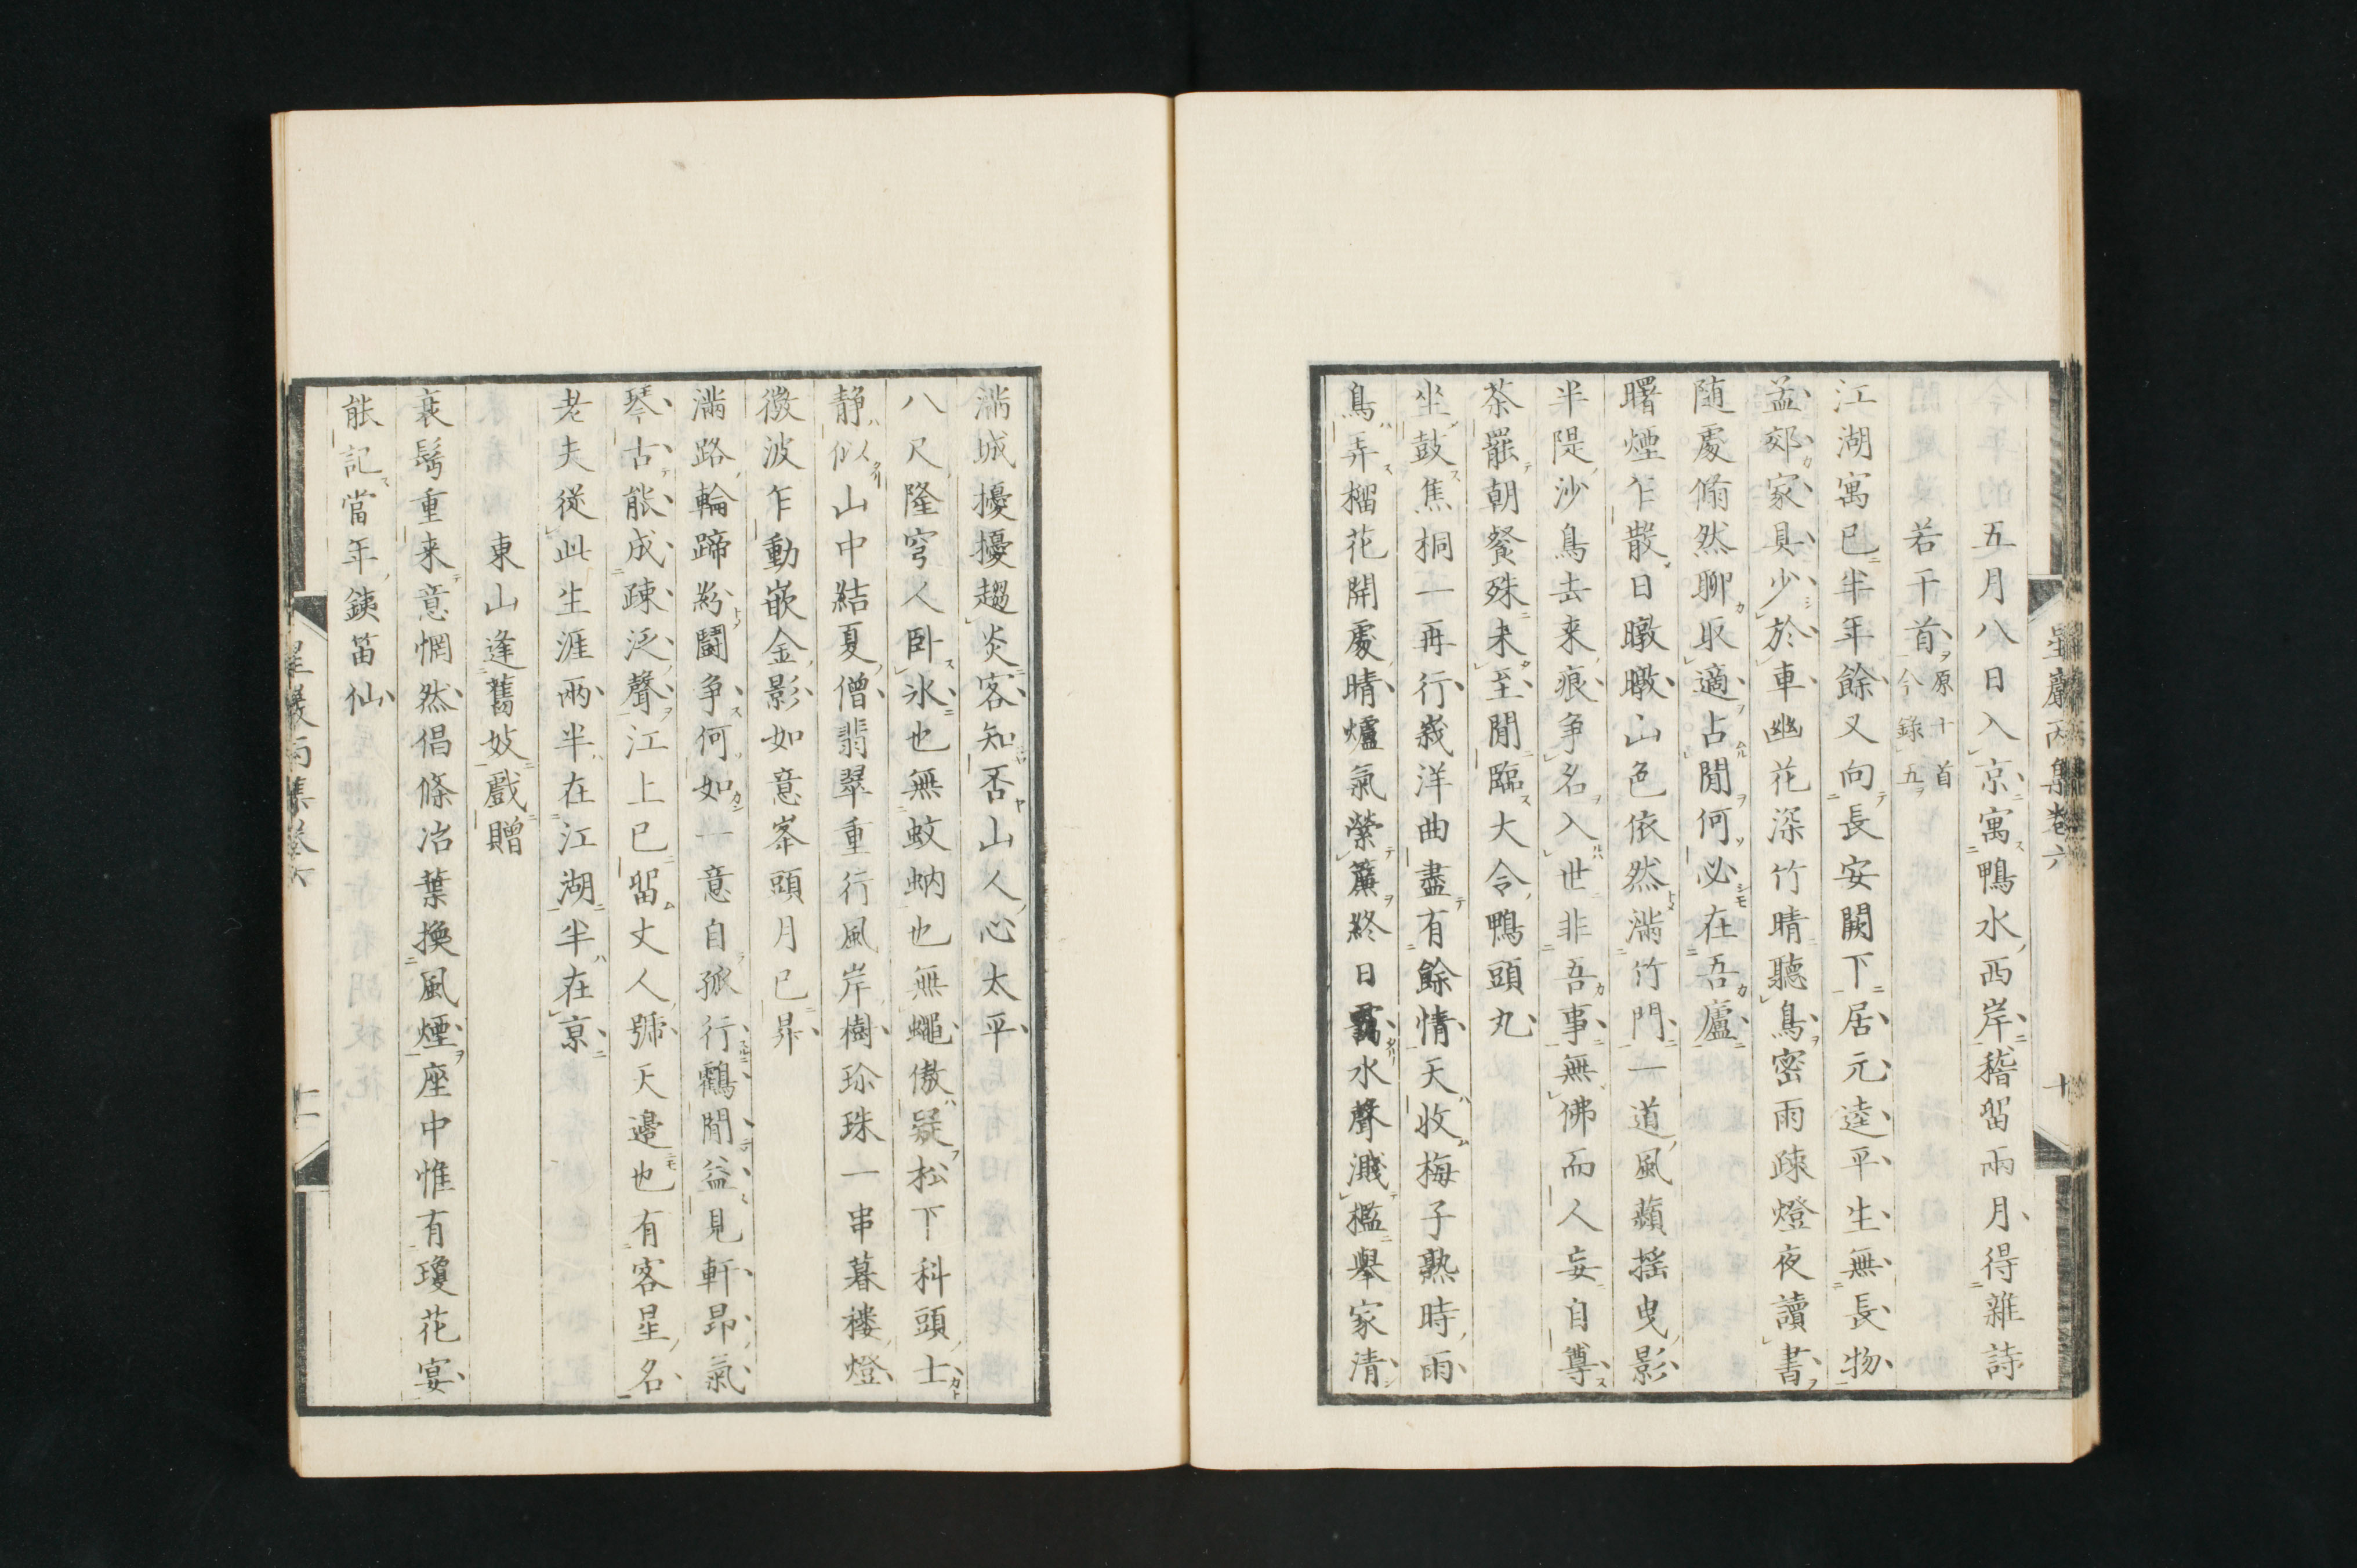 五月八日入京寓鴨水西岸稽留兩月得雜詩
若干首原十首今錄五
江湖寓已半年餘又向長安闕下居元逵平生無長物
孟郊家具少於車幽花深竹晴聽鳥密雨疎燈夜讀書
随處翛然聊取適占閒何必在吾廬
曙煙乍散日暾暾山色依然滿竹門一道風蘋搖曳影
半隄沙鳥去来痕爭名入世非吾事無佛而人妄自尊
茶罷朝餐殊未至閒臨大令鴨頭丸
坐鼓焦桐一再行峩洋曲盡有餘情天收梅子熟時雨
鳥弄榴花開處晴爐氣縈簾終日靄水聲濺檻舉家清
滿城擾擾趨炎客知否山人心太平
八尺隆穹人卧氷也無蚊蚋也無蠅傲疑松下科頭士
静似山中結夏僧翡翠重行風岸樹珍珠一串暮樓燈
微波乍動嵌金影如意峯頭月已昇
滿路輪蹄紛鬭爭何如一意自孤行鶴閒益見軒昂氣
琴古能成疎泛聲江上已留丈人號天邊也有客星名
老夫從此生涯兩半在江湖半在京
東山逢舊妓戲贈
衰髩重来意惘然倡條冶葉換風煙座中惟有瓊花宴
能記當年鐵笛仙
星巖丙集卷六
十
星巖丙集卷六
十一